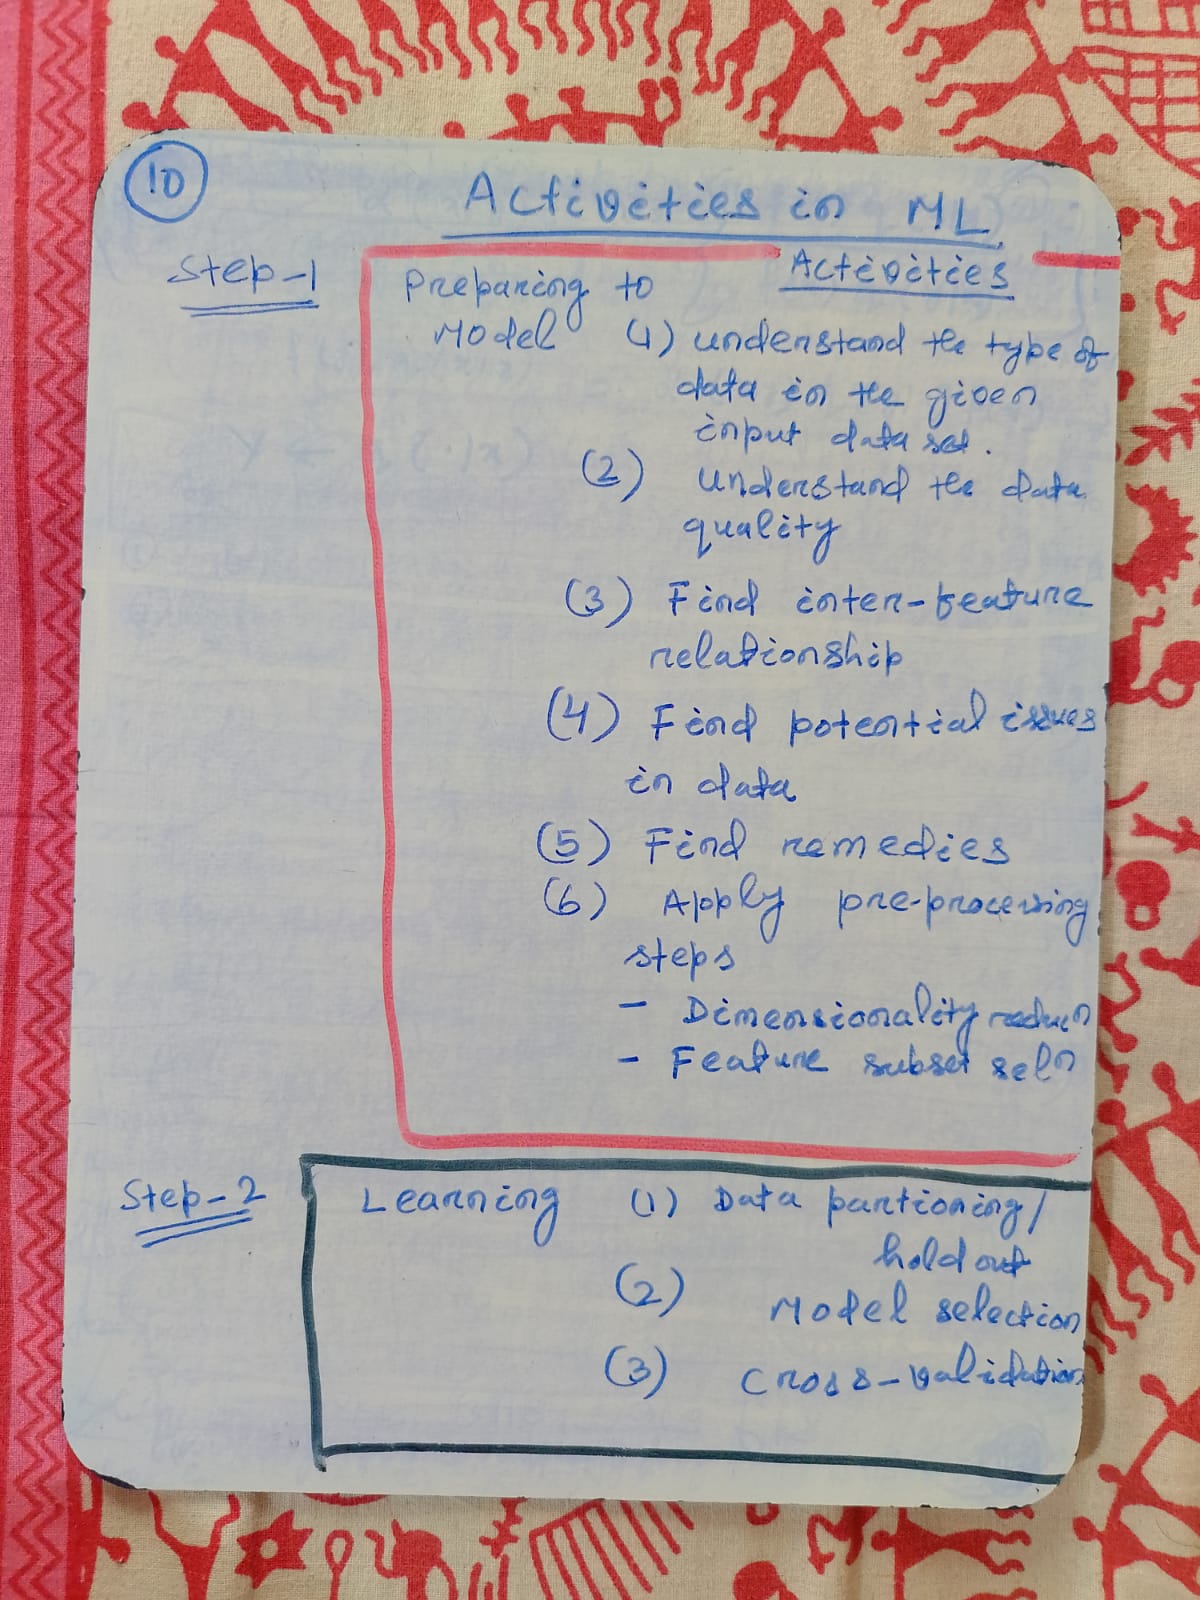 10
Activities in ML
Step-1
Activities
Preparing to
Model (1) understand the type of
data in the given
input data set.
(2) understand the data
quality
(3) Find inter-feature
relationship
(4) Find potential issues
in data
(5) Find remedies
(6) Apply pre-processing
steps
- Dimensionality reducn
- Feature subset seln
Step-2 Learning (1) Data partioning/
hold out
(2) Model selection
(3) cross-validation